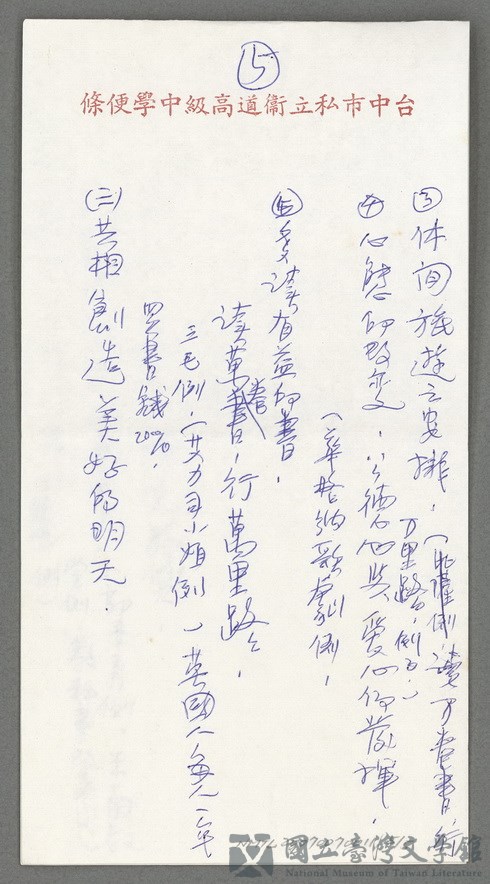 ⑮
台中市私立衞道高級中學便條
③休间旅遊之安排。(北歐例,讀万卷書,行
万里路,例子。)
④心態的改变,公德心與愛心的發揮。
(華格納歌劇例,
⑤多讀有益的書。
讀萬卷書,行萬里路。
三毛例,小姐例)英國人每人一年
買書錢200元,
(三)共相創造美好的明天.
國立臺灣文學館
National Museum of Taiwan Literature